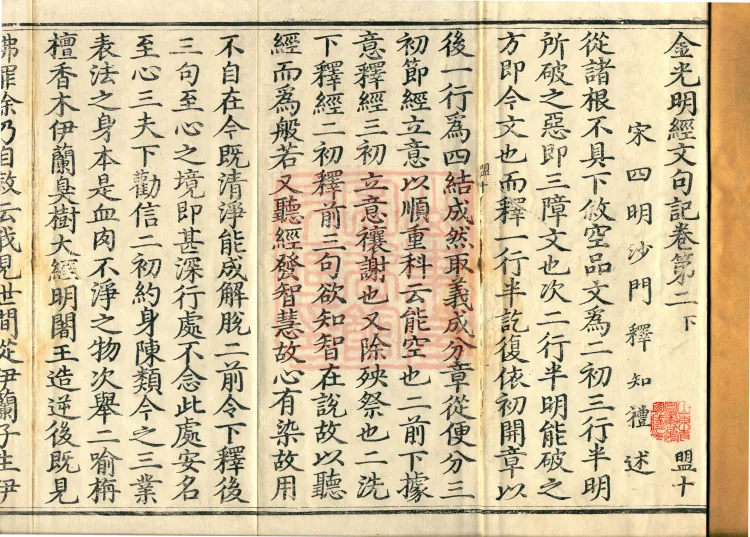 金光明經文句記卷第二下 盟十
宋四明沙門釋知禮述
從諸根不具下敘空品文為二初三行半明
所破之惡即三障文也次二行半明能破之
方即今文也而釋一行半訖復依初開章以
盟十
後一行為四結成然取義成分章從便分三
初節經立意以順重科云能空也二前下據
意釋經三初立意禳謝也又除殃祭也二洗
下釋經二初釋前三句欲知智在說故以聽
經而為般若又聽經發智慧故心有染故用
不自在今既清淨能成解脫二前令下釋後
三句至心之境即甚深行處不念此處安名
至心三夫下勸信二初約身陳類今之三業
表法之身本是血肉不淨之物次舉二喻栴
檀香木伊蘭臭樹大經明闍王造逆後既見
佛罪除乃自敘云我見世間從伊蘭子生伊